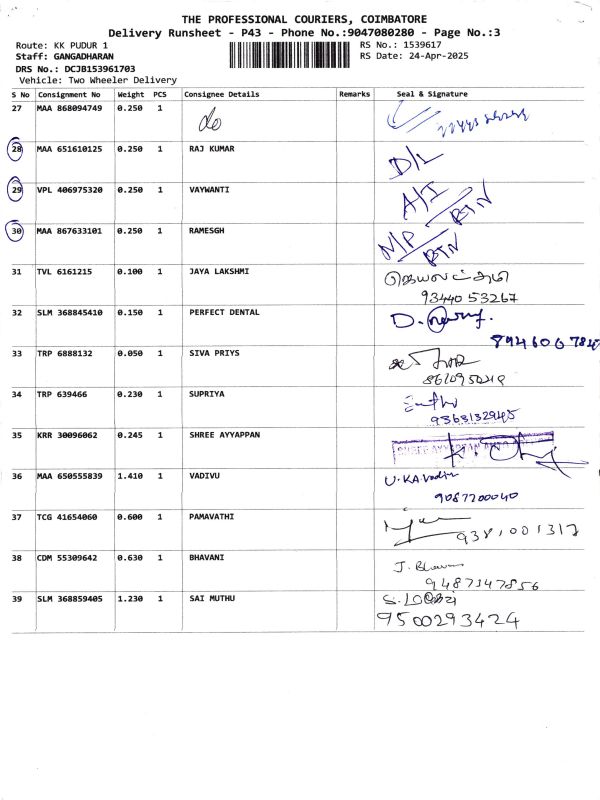 THE PROFESSIONAL COURIERS, COIMBATORE
Delivery Runsheet - P43 - Phone No.:9047080280 - Page No.:3
Route: KK PUDUR 1 RS No.: 1539617
Staff: GANGADHARAN RS Date: 24-Apr-2025
DRS No.: DCJB153961703
Vehicle: Two Wheeler Delivery
S No Consignment No Weight PCS Consignee Details Remarks Seal & Signature
27 MAA 868094749 0.250 1 do
28 MAA 651610125 0.250 1 RAJ KUMAR D/L
29 VPL 406975320 0.250 1 VAYWANTI A/I RTN
30 MAA 867633101 0.250 1 RAMESGH N/P RTN
31 TVL 6161215 0.100 1 JAYA LAKSHMI
93440 53267
32 SLM 368845410 0.150 1 PERFECT DENTAL
33 TRP 6888132 0.050 1 SIVA PRIYS
34 TRP 639466 0.230 1 SUPRIYA
35 KRR 30096062 0.245 1 SHREE AYYAPPAN
36 MAA 650555839 1.410 1 VADIVU U.KA.Vadiv
9087700040
37 TCG 41654060 0.600 1 PAMAVATHI 9381001317
38 CDM 55309642 0.630 1 BHAVANI
9487347856
39 SLM 368859405 1.230 1 SAI MUTHU
9500293424